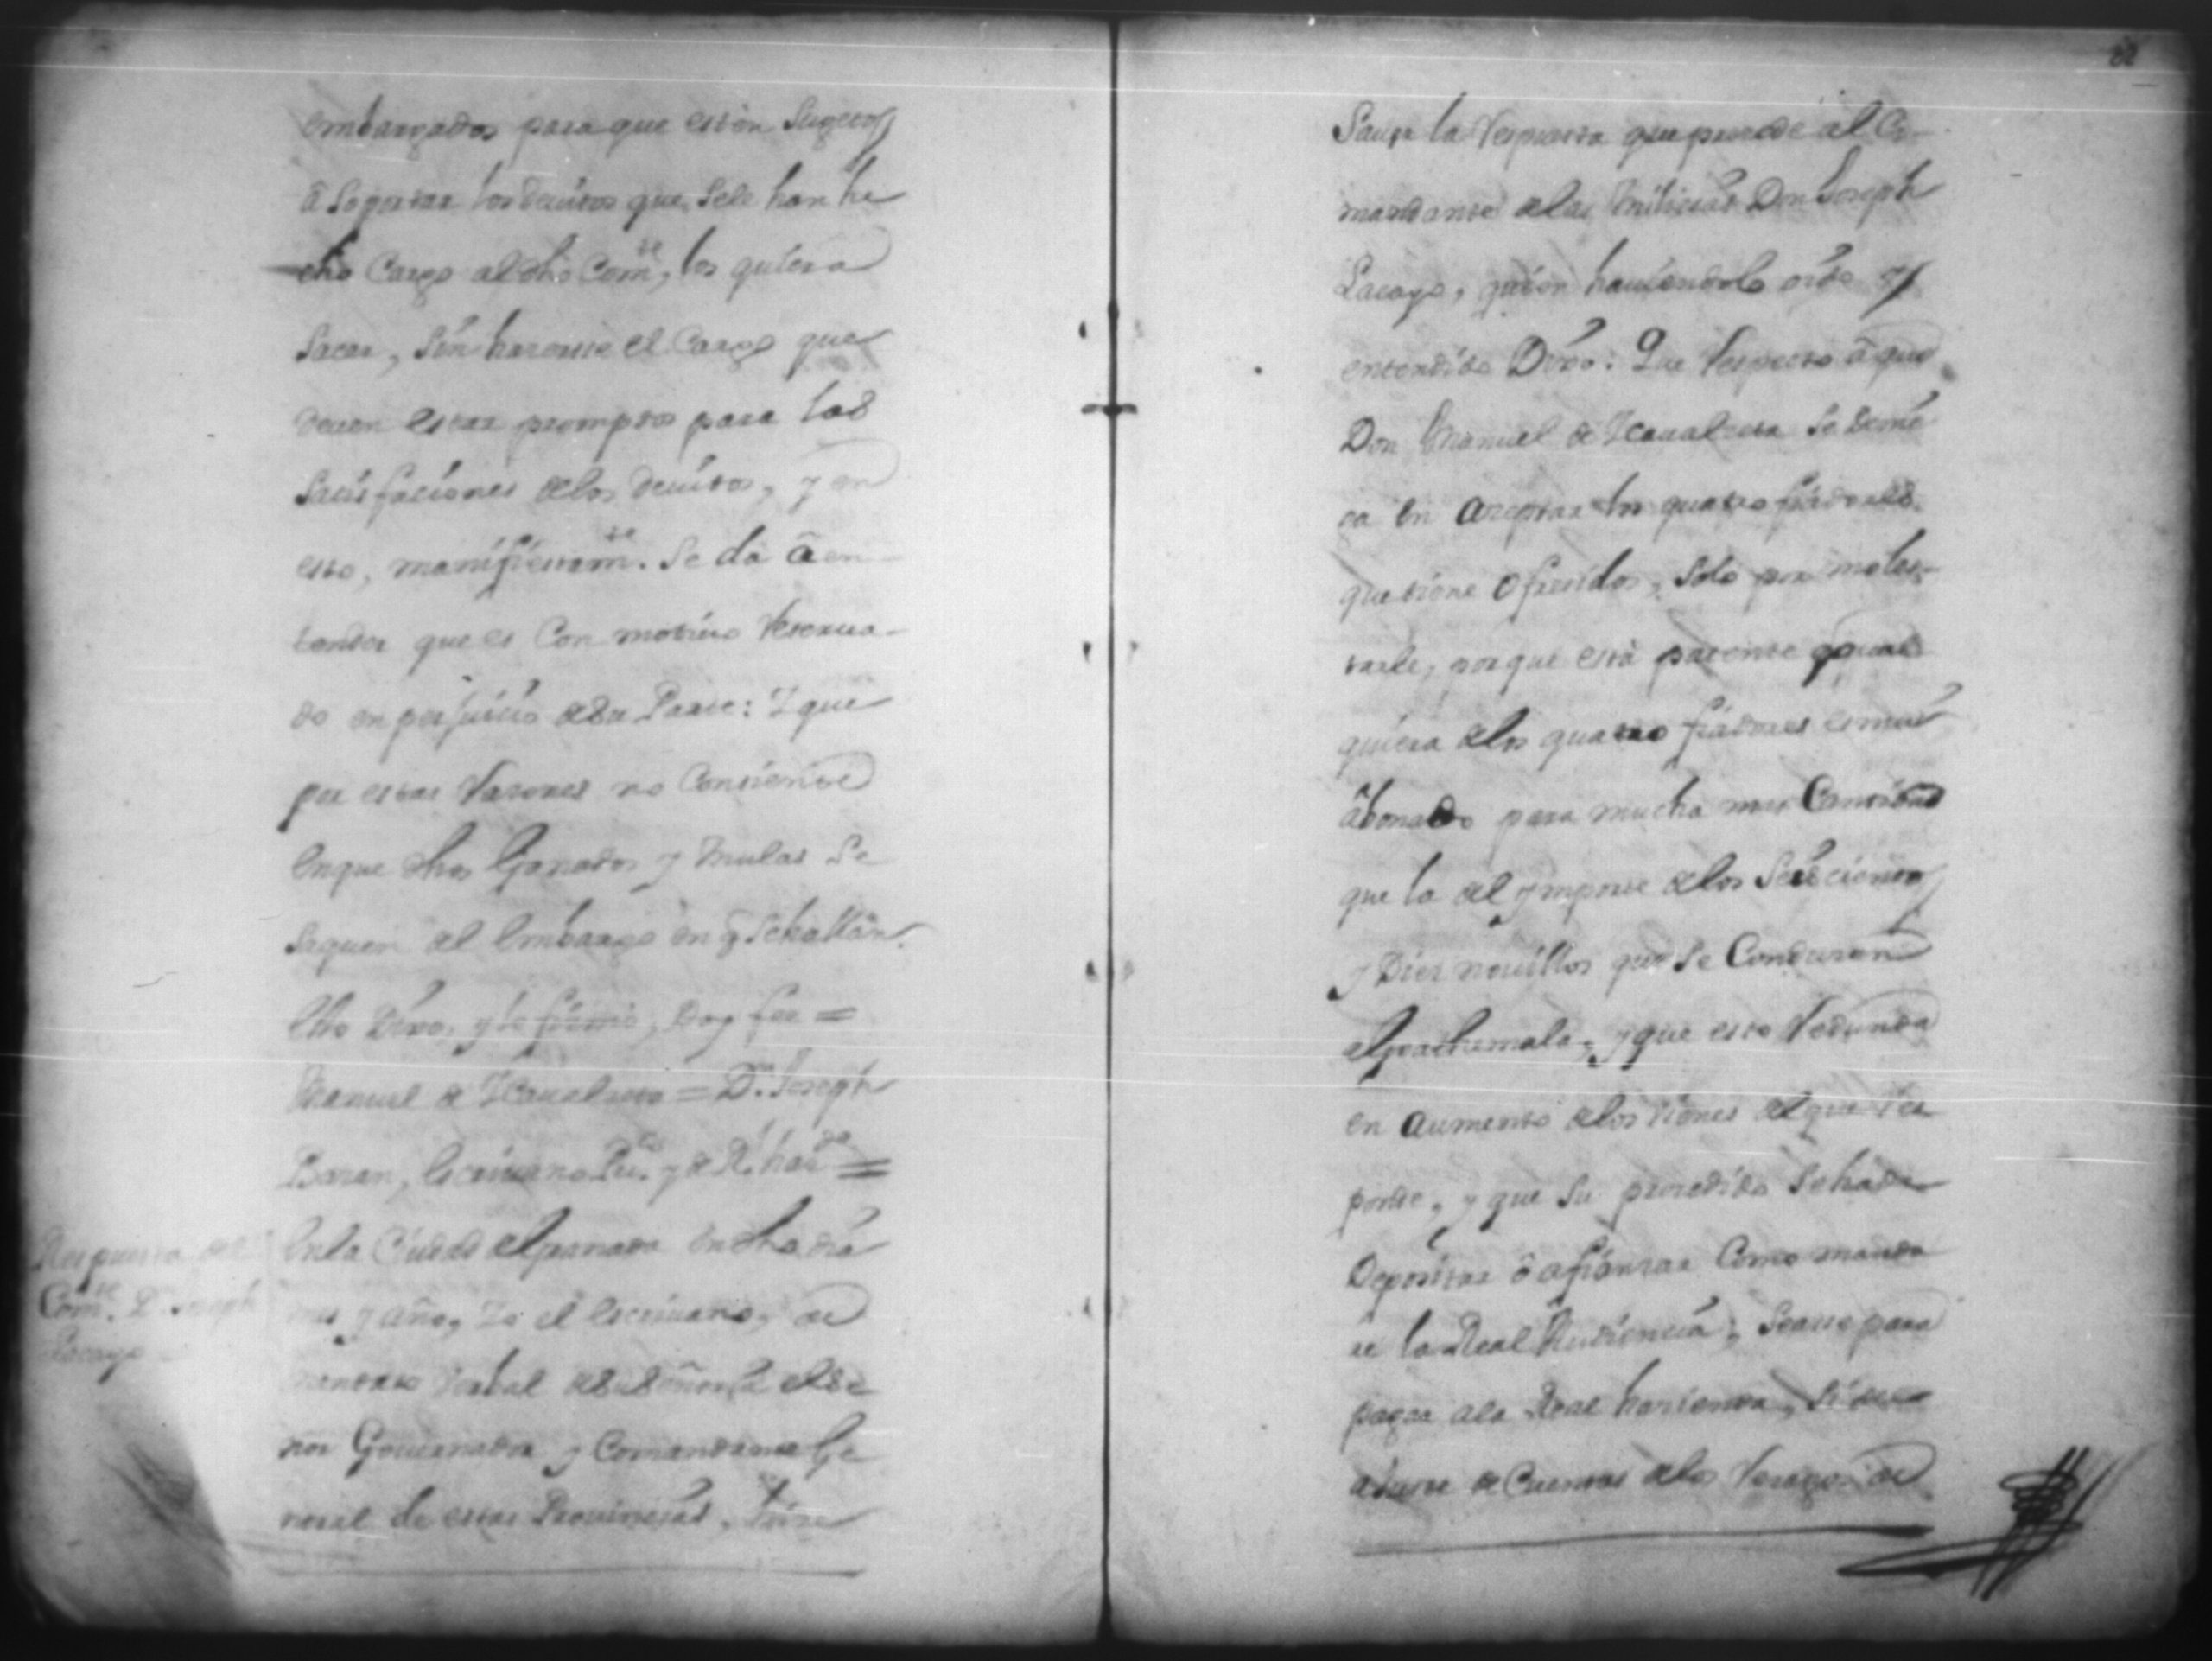 embargados para que estèn Sugetos
â Soportar los devitos que Sele han he
cho Cargo al dho Comte, los quiera
Sacar, Sin hacerse el Cargo que
deven estar promptos para las
Satisfaciones delos devitos, y en
esto, manifiestamte. Se da â en
tender que es Con motivo Reserva-
do en perjuicio desu Parte: Y que
por estas Razones no Consiente
enque dhos Ganados y Mulas Se
Saquen del Embargo en q Sehallan.
Esto Dixo, y lo firmò, Doy fee =
Manuel de Ycaualzeta = Dn. Joseph
Bazan, Escrivano Puco. y de Rl. hazda =
Respuesta del
Comte. Dn. Joseph
Lacayo
Enla Ciudad de Granada en dho dia
mes y año, Yo el Escrivano, de
mandato verbal de su Señoria el Se
ñor Governador y Comandante Ge
neral de estas Provincias, hize
82
Saver la Respuesta que precede al Co-
mandante delas Milicias Don Joseph
Lacayo, quien haviendolo oido y
entendido Dixo: Que Respecto â que
Don Manuel de Ycaualzeta Se denie
ga en aceptar los quatro fiadores
que tiene Ofrecidos, Solo por moles-
tarle, porque està patente qe qual
quiera delos quatro fiadores es mui
âbonado para mucha mas Cantidad
que la del ymporte delos Seiscientos
y Diez novillos que Se Conduzen
a Goathemala, y que esto Redunda
en aumento delos vienes del que res
ponde, y que Su procedido Sehade
Depositar ô afianzar Como manda
re la Real Audiencia, Sease para
pagar ala Real hazienda, Si de
de Cuentas delos de